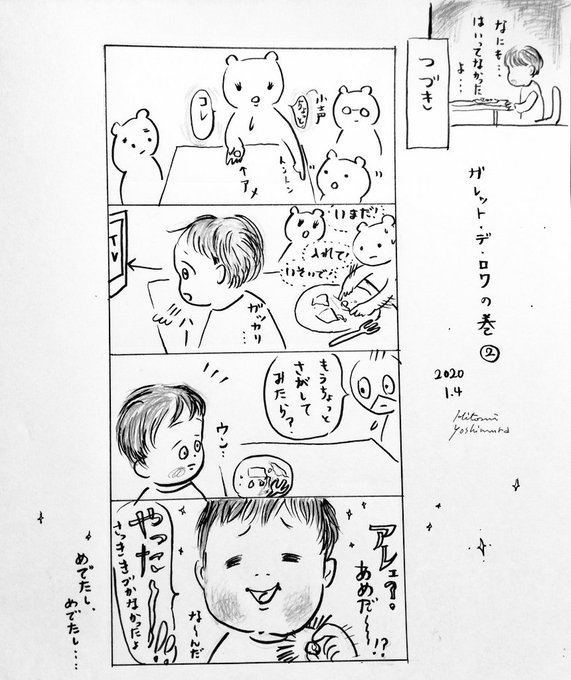 なにも…
はいってなかった
よ…
つづき
ガレット・デ・ロワの巻②
2020
1.4
Hitomi
Yoshimura
小声
ちょっと
コレ
トントン
↑アメ
いまだ!
入れて!
いそいで!
ガッカリ…
ハー
TV
もうちょっと
さがして
みたら?
ウン…
あめだ〜〜!?
な〜んだ
やったー
さっききづかなかったよ
めでたし、
めでたし…